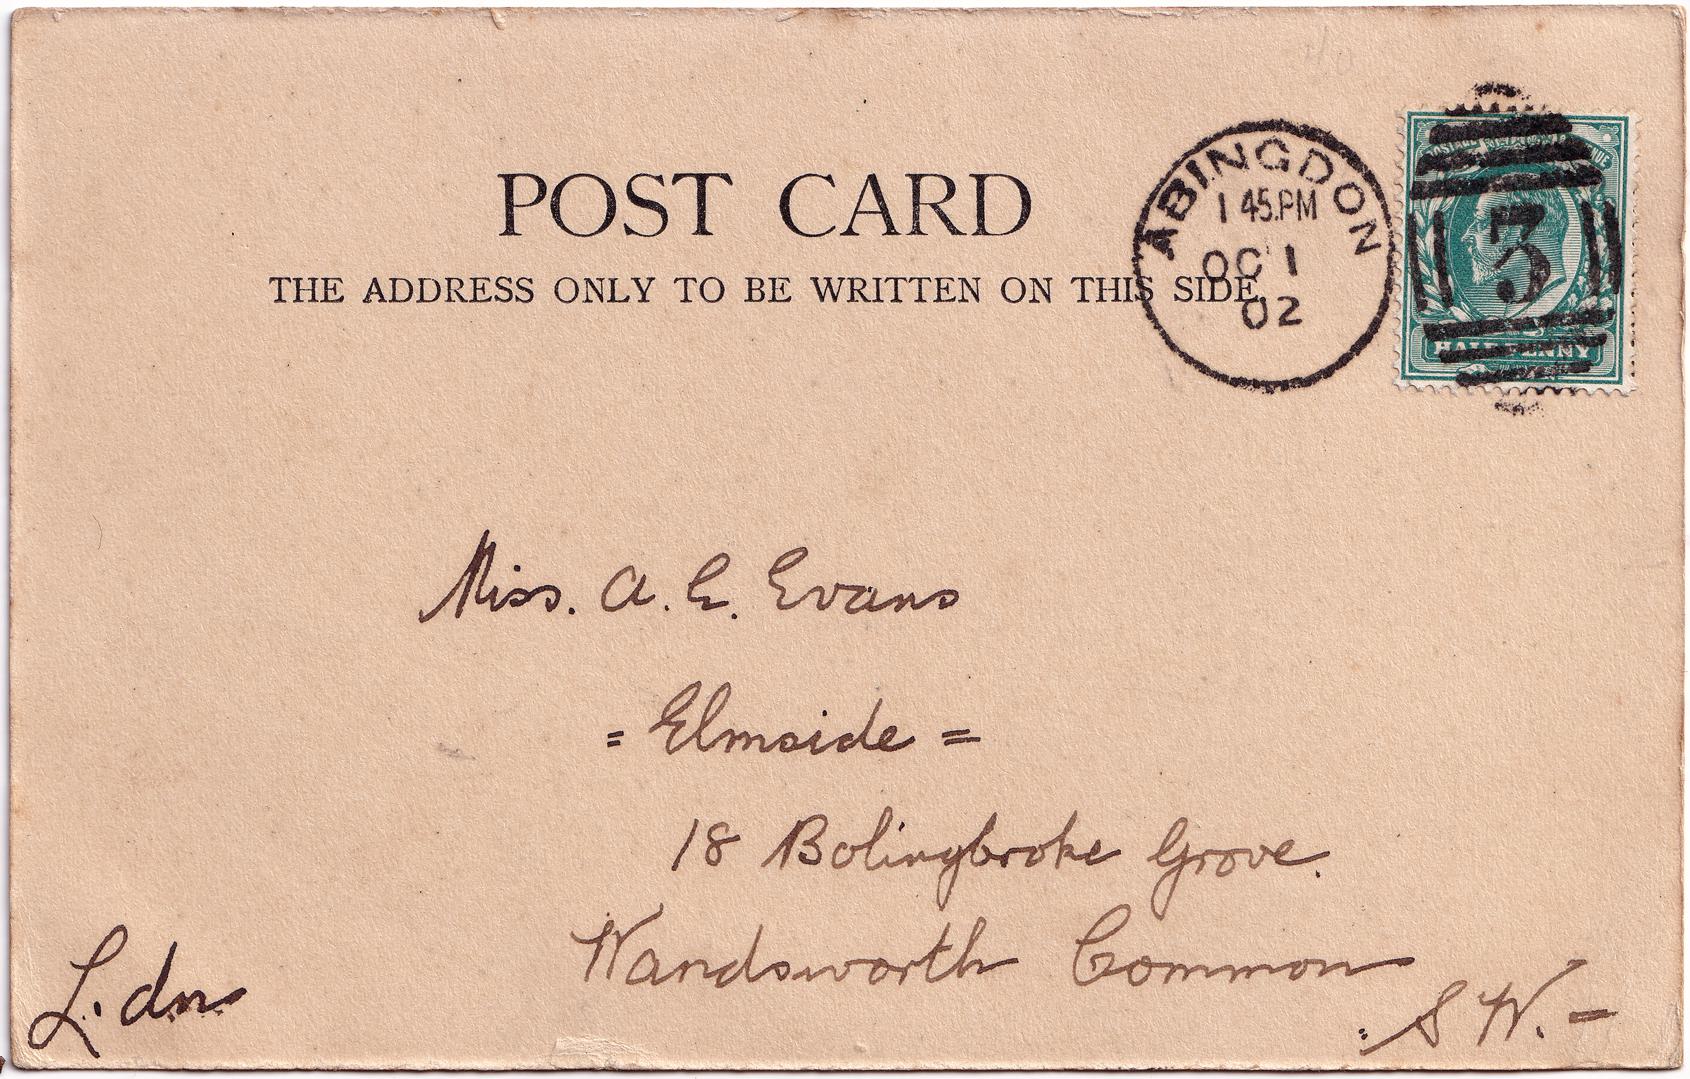 POST CARD
THE ADDRESS ONLY TO BE WRITTEN ON THIS SIDE
ABINGDON
1 45.PM
OC 1
02
3
HALFPENNY
Miss. A. E. Evans
= Elmside =
18 Bolingbroke Grove.
Wandsworth Common
S W. =
L.dn